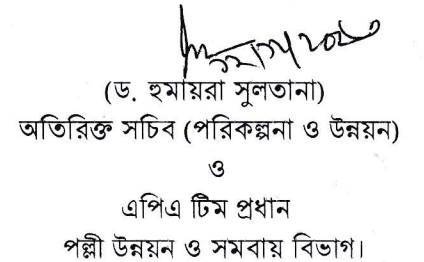 (ড. হুমায়রা সুলতানা)
অতিরিক্ত সচিব (পরিকল্পনা ও উন্নয়ন)
ও
এপিএ টিম প্রধান
পল্লী উন্নয়ন ও সমবায় বিভাগ।